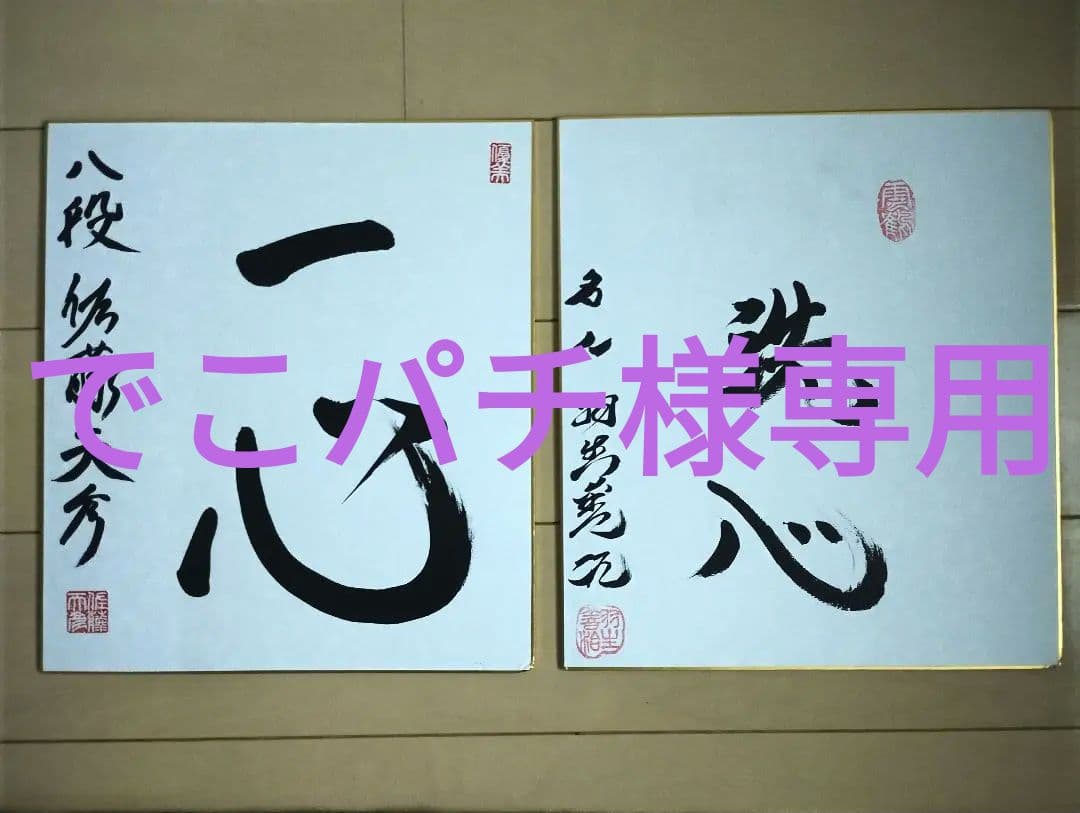 でこパチ様専用
八段 佐藤天彦
一心
優美
佐藤
天彦
名人 羽生善治
洗心
羽生
善治